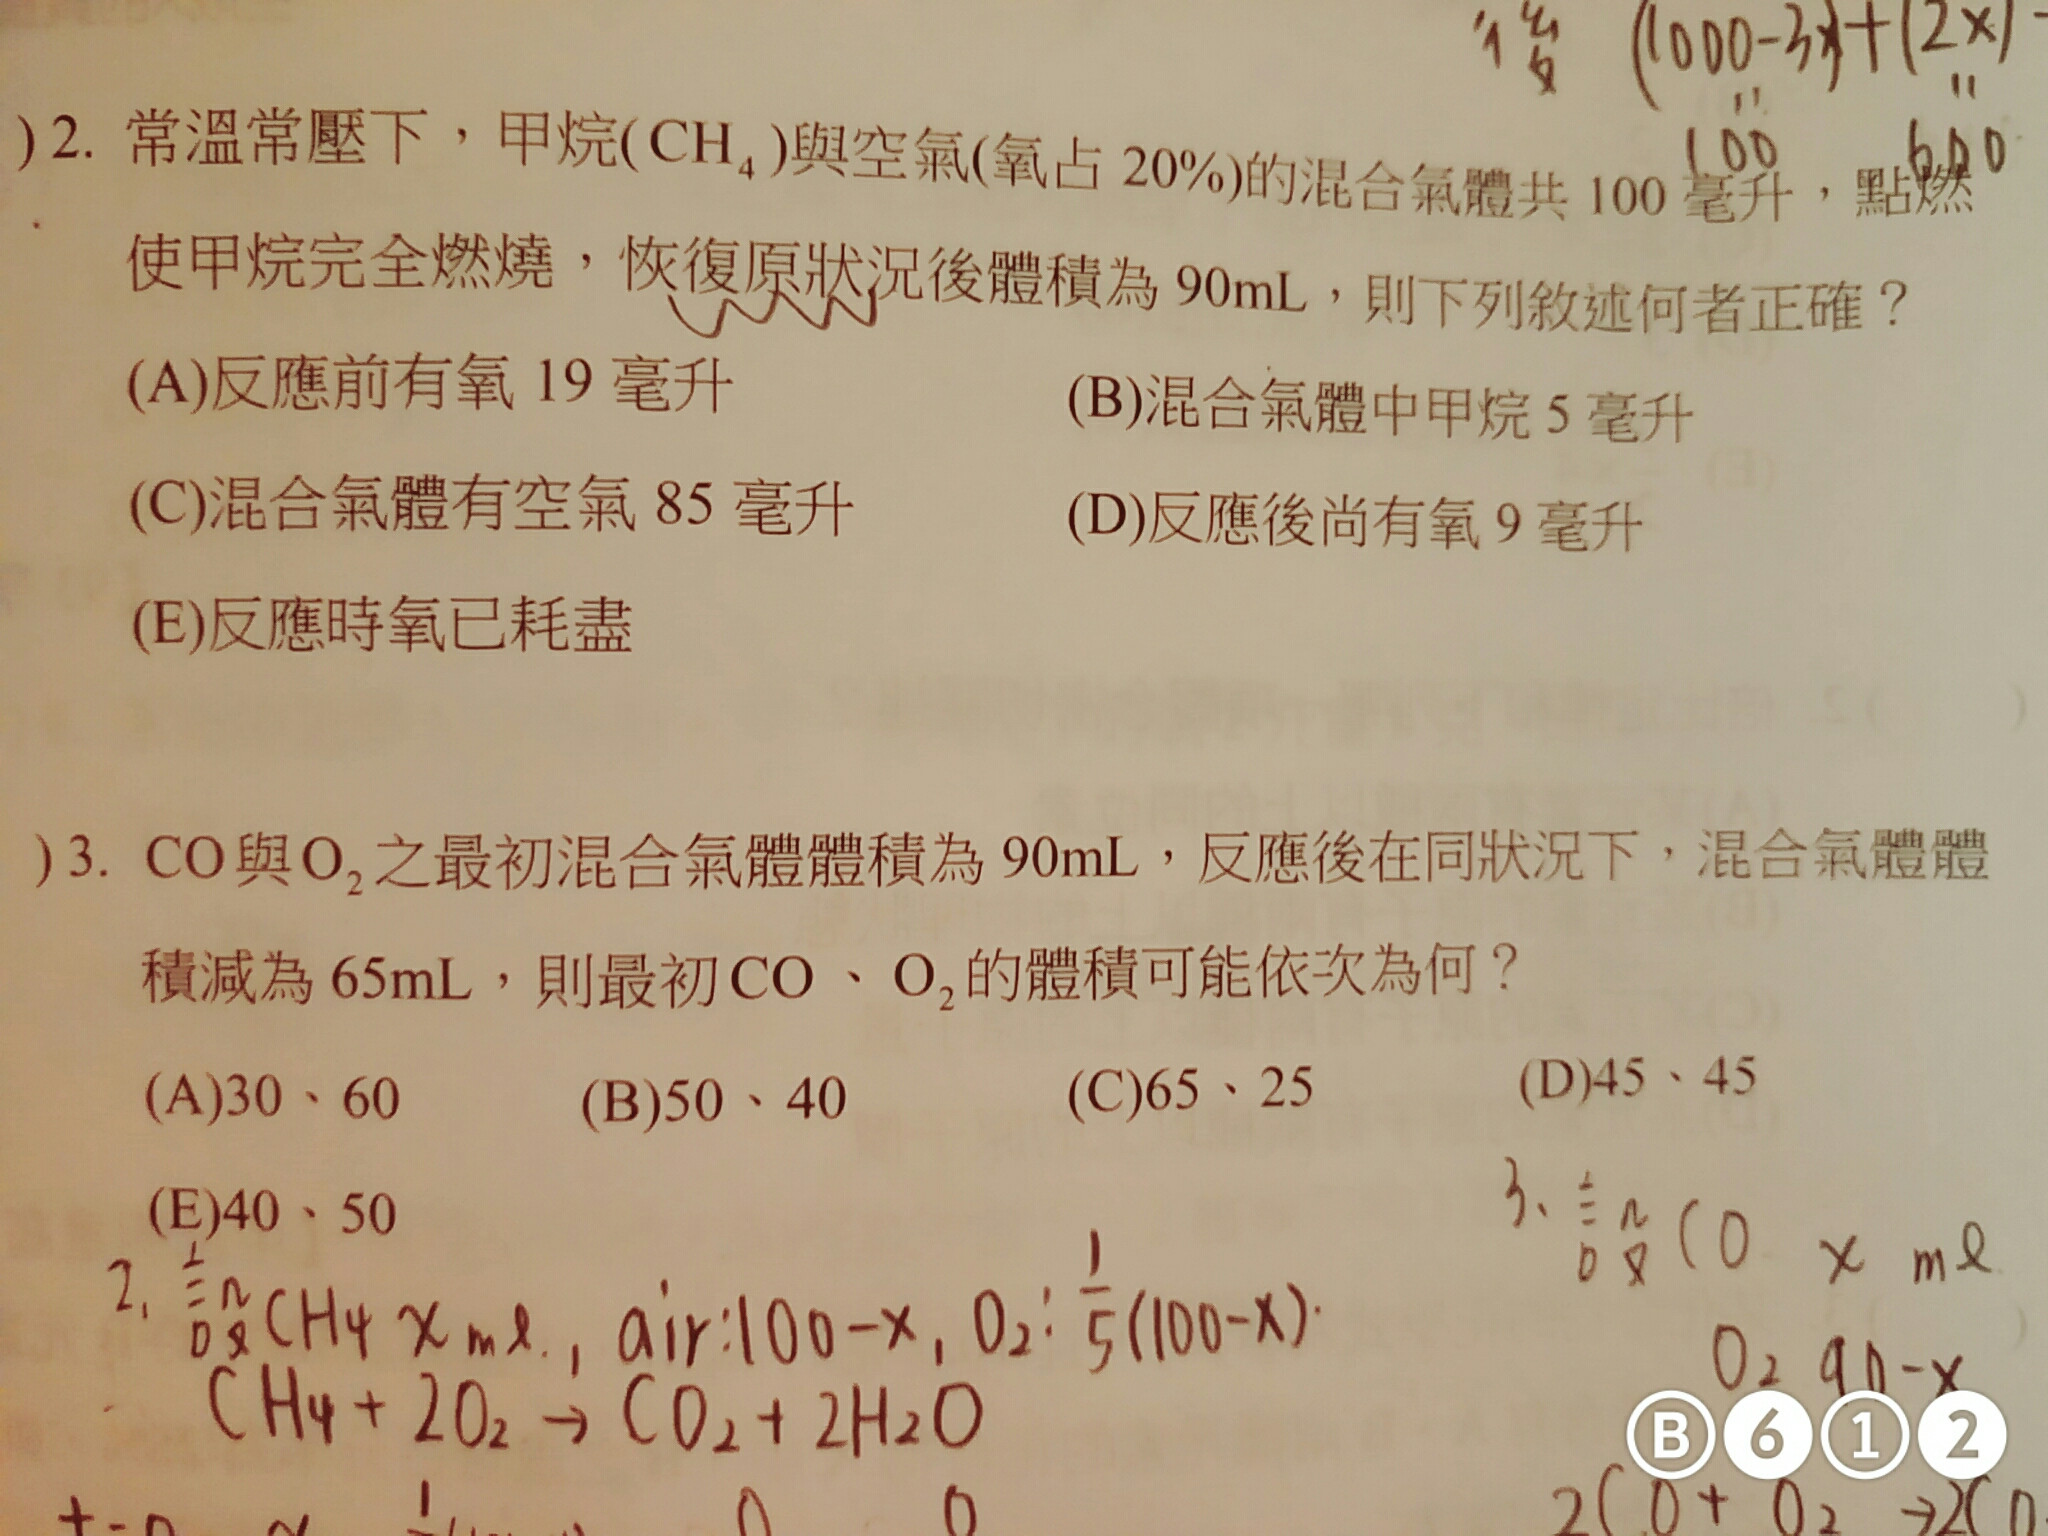 後 (1000-3x)+(2x)
" "
100 600
)2. 常溫常壓下，甲烷(CH₄)與空氣(氧占 20%)的混合氣體共 100 毫升，點燃
使甲烷完全燃燒，恢復原狀況後體積為 90mL，則下列敘述何者正確？
(A)反應前有氧 19 毫升 (B)混合氣體中甲烷 5 毫升
(C)混合氣體有空氣 85 毫升 (D)反應後尚有氧 9 毫升
(E)反應時氧已耗盡
)3. CO與O₂之最初混合氣體體積為 90mL，反應後在同狀況下，混合氣體體
積減為 65mL，則最初CO、O₂的體積可能依次為何？
(A)30、60 (B)50、40 (C)65、25 (D)45、45
(E)40、50
3. 設 CO x ml
O₂ 90-x
2. 設CH₄ x ml., air:100-x, O₂: 1/5(100-x).
CH₄ + 2O₂ → CO₂ + 2H₂O
2CO + O₂ →2CO
B612